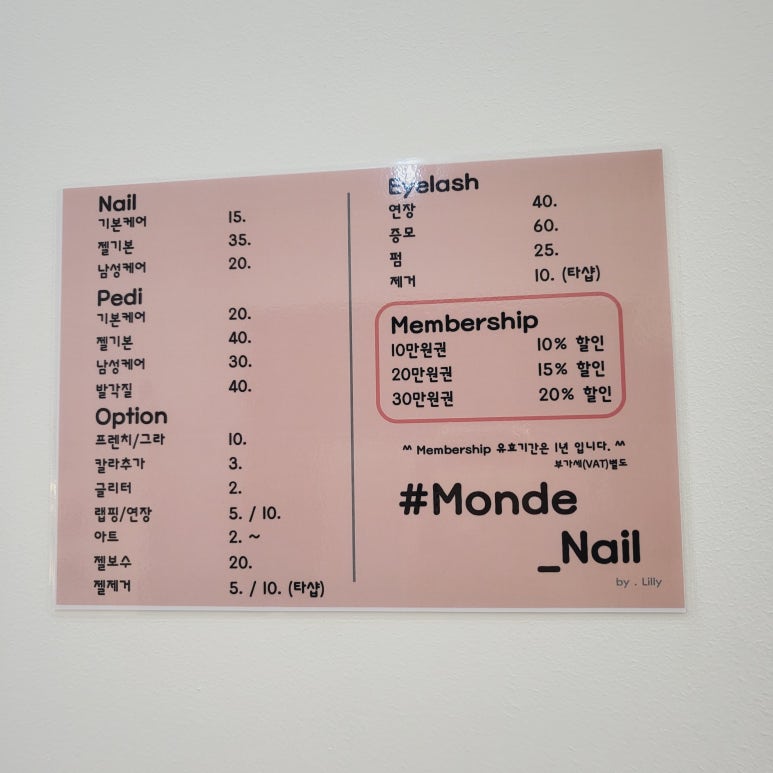 Nail
기본케어 15.
젤기본 35.
남성케어 20.
Pedi
기본케어 20.
젤기본 40.
남성케어 30.
발각질 40.
Option
프렌치/그라 10.
칼라추가 3.
글리터 2.
랩핑/연장 5. / 10.
아트 2. ~
젤보수 20.
젤제거 5. / 10. (타샵)
Eyelash
연장 40.
증모 60.
펌 25.
제거 10. (타샵)
Membership
10만원권 10% 할인
20만원권 15% 할인
30만원권 20% 할인
^^ Membership 유효기간은 1년 입니다. ^^
부가세(VAT)별도
#Monde
_Nail
by . Lilly